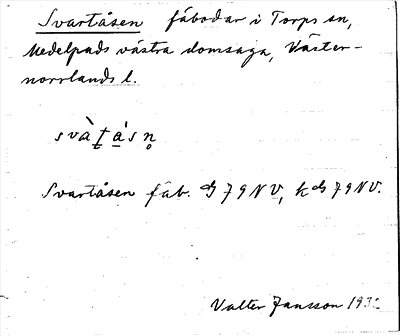 Svartåsen fäbodar i Torps sn,
Medelpads västra domsaga, Väster-
norrlands l.
svàṭǻ̱sn̥
Svartåsen fäb. G79NV, kdG79NV.
Valter Jansson 193